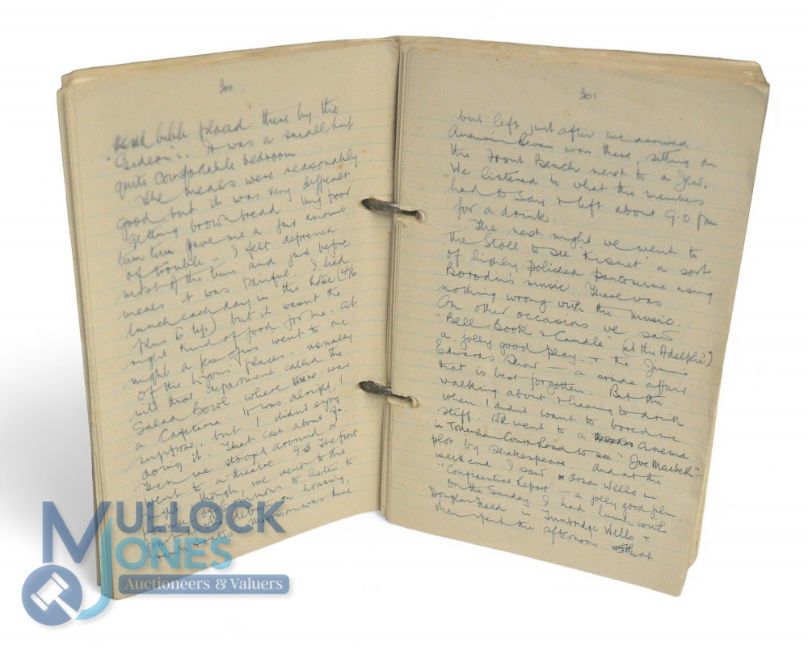 300.
bible placed there by the
"Gideon's". It was a small but
quite comfortable bedroom.
The meals were reasonably
good but it was very difficult
getting brown bread. My poor
tum tum gave me a fair amount
of trouble - I felt depressed
most of the time and just before
meals it was painful. I had
lunch each day in the hotel (
plus 6 tip) but it wasn't the
right kind of food for me. at
night a few of us went to one
of the Lyons' places - usually
into that department called the
Salad Bowl where there was
a Cafeteria. It was alright, I
suppose, but I didn't enjoy
doing it. That cost about
Then we strolled around or
went to a theatre. The first
night, though, we went to the
to listen to
on housing,
was here
301
but left just after we arrived.
Aneurin Bevan was there, sitting on
the Front Bench next to a Jew.
We listened to what the members
had to say & left about 9.0 pm
for a drink.
The next night we went to
the Stoll to see "Kismet" a sort
of highly polished pantomime using
Borodin's music. There was
nothing wrong with the music.
On other occasions we saw
"Bell Book & Candle" (at the Adelphi)
a jolly good play - & the Jimmie
Edwards Show - a affair
that is best forgotten. But the
walking about & having to drink
when I didn't want to bored me
stiff. We went to a cinema
in Tottenham Court Road to see "Joe Macbeth"
plot by Shakespeare. And at the
weekend I saw Orson Wells in
"Confidential Report" - a jolly good film.
On the Sunday I had lunch with
Douglas in Tunbridge Wells &
then spent the afternoon at
MULLOCK
JONES
Auctioneers & Valuers